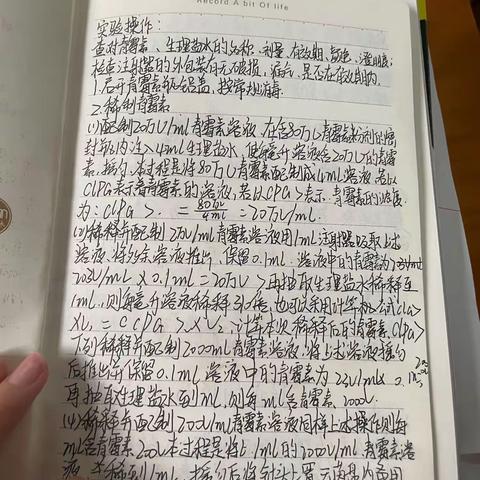 Record A bit Of life
实验操作:
查对青霉素、生理盐水的名称、剂量、有效期、颜色、澄明度;
检查注射器的外包装有无破损、漏气、是否在有效期内。
1.启开青霉素瓶铝盖,按常规消毒
2.稀制青霉素
(1)配制20万U/1ml青霉素溶液,在含80万U青霉素粉剂的密
封瓶内注入4ml生理盐水,使每毫升溶液含20万U的青霉
素,摇匀。本过程是将80万U青霉素配制成4ml溶液,若以
C1PG表示青霉素的溶液,若以CPG>表示青霉素的浓度
为:C1PG>.=80万U/4ml=20万U/mL.
(2)稀释并配制2万U/1ml青霉素溶液用1ml注射器吸取上述
溶液,将多余溶液推出,保留0.1ml.溶液中的青霉素为
/mL×0.1mL=20万U>再抽取生理盐水稀释至
1mL,则每毫升溶液稀释了10倍,也可以采用计算机公式
XV1=CCPG>XV2,计算本次稀释后的青霉素C1PG>
(3)稀释并配制2000ml青霉素溶液,将上述溶液摇匀
后推出并保留0.1ml溶液中的青霉素为
再抽取生理盐水至1ml,则每ml含青霉素200U
(4)稀释并配制200U/ml青霉素溶液同样上述操作则每
ml含青霉素200U本过程是将0.1ml的2000U/ml青霉素溶
液